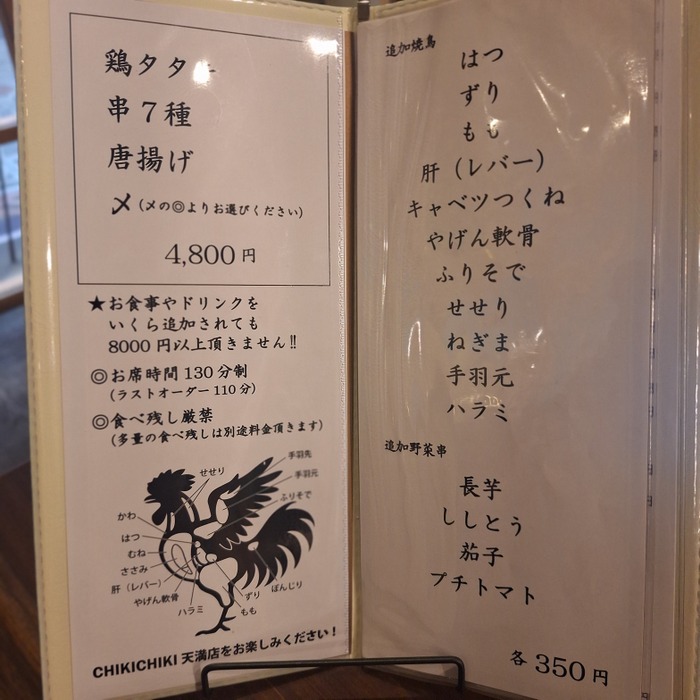 鶏タタキ
串7種
唐揚げ
〆(〆の◎よりお選びください)
4,800円
★お食事やドリンクを
いくら追加されても
8000円以上頂きません!!
◎お席時間130分制
(ラストオーダー110分)
◎食べ残し厳禁
(多量の食べ残しは別途料金頂きます)
手羽先
せせり
手羽元
ふりそで
かわ
はつ
むね
ささみ
肝(レバー)
やげん軟骨
ハラミ
もも
ずり
ぼんじり
CHIKICHIKI 天満店をお楽しみください!
追加焼鳥
はつ
ずり
もも
肝(レバー)
キャベツつくね
やげん軟骨
ふりそで
せせり
ねぎま
手羽元
ハラミ
追加野菜串
長芋
ししとう
茄子
プチトマト
各350円